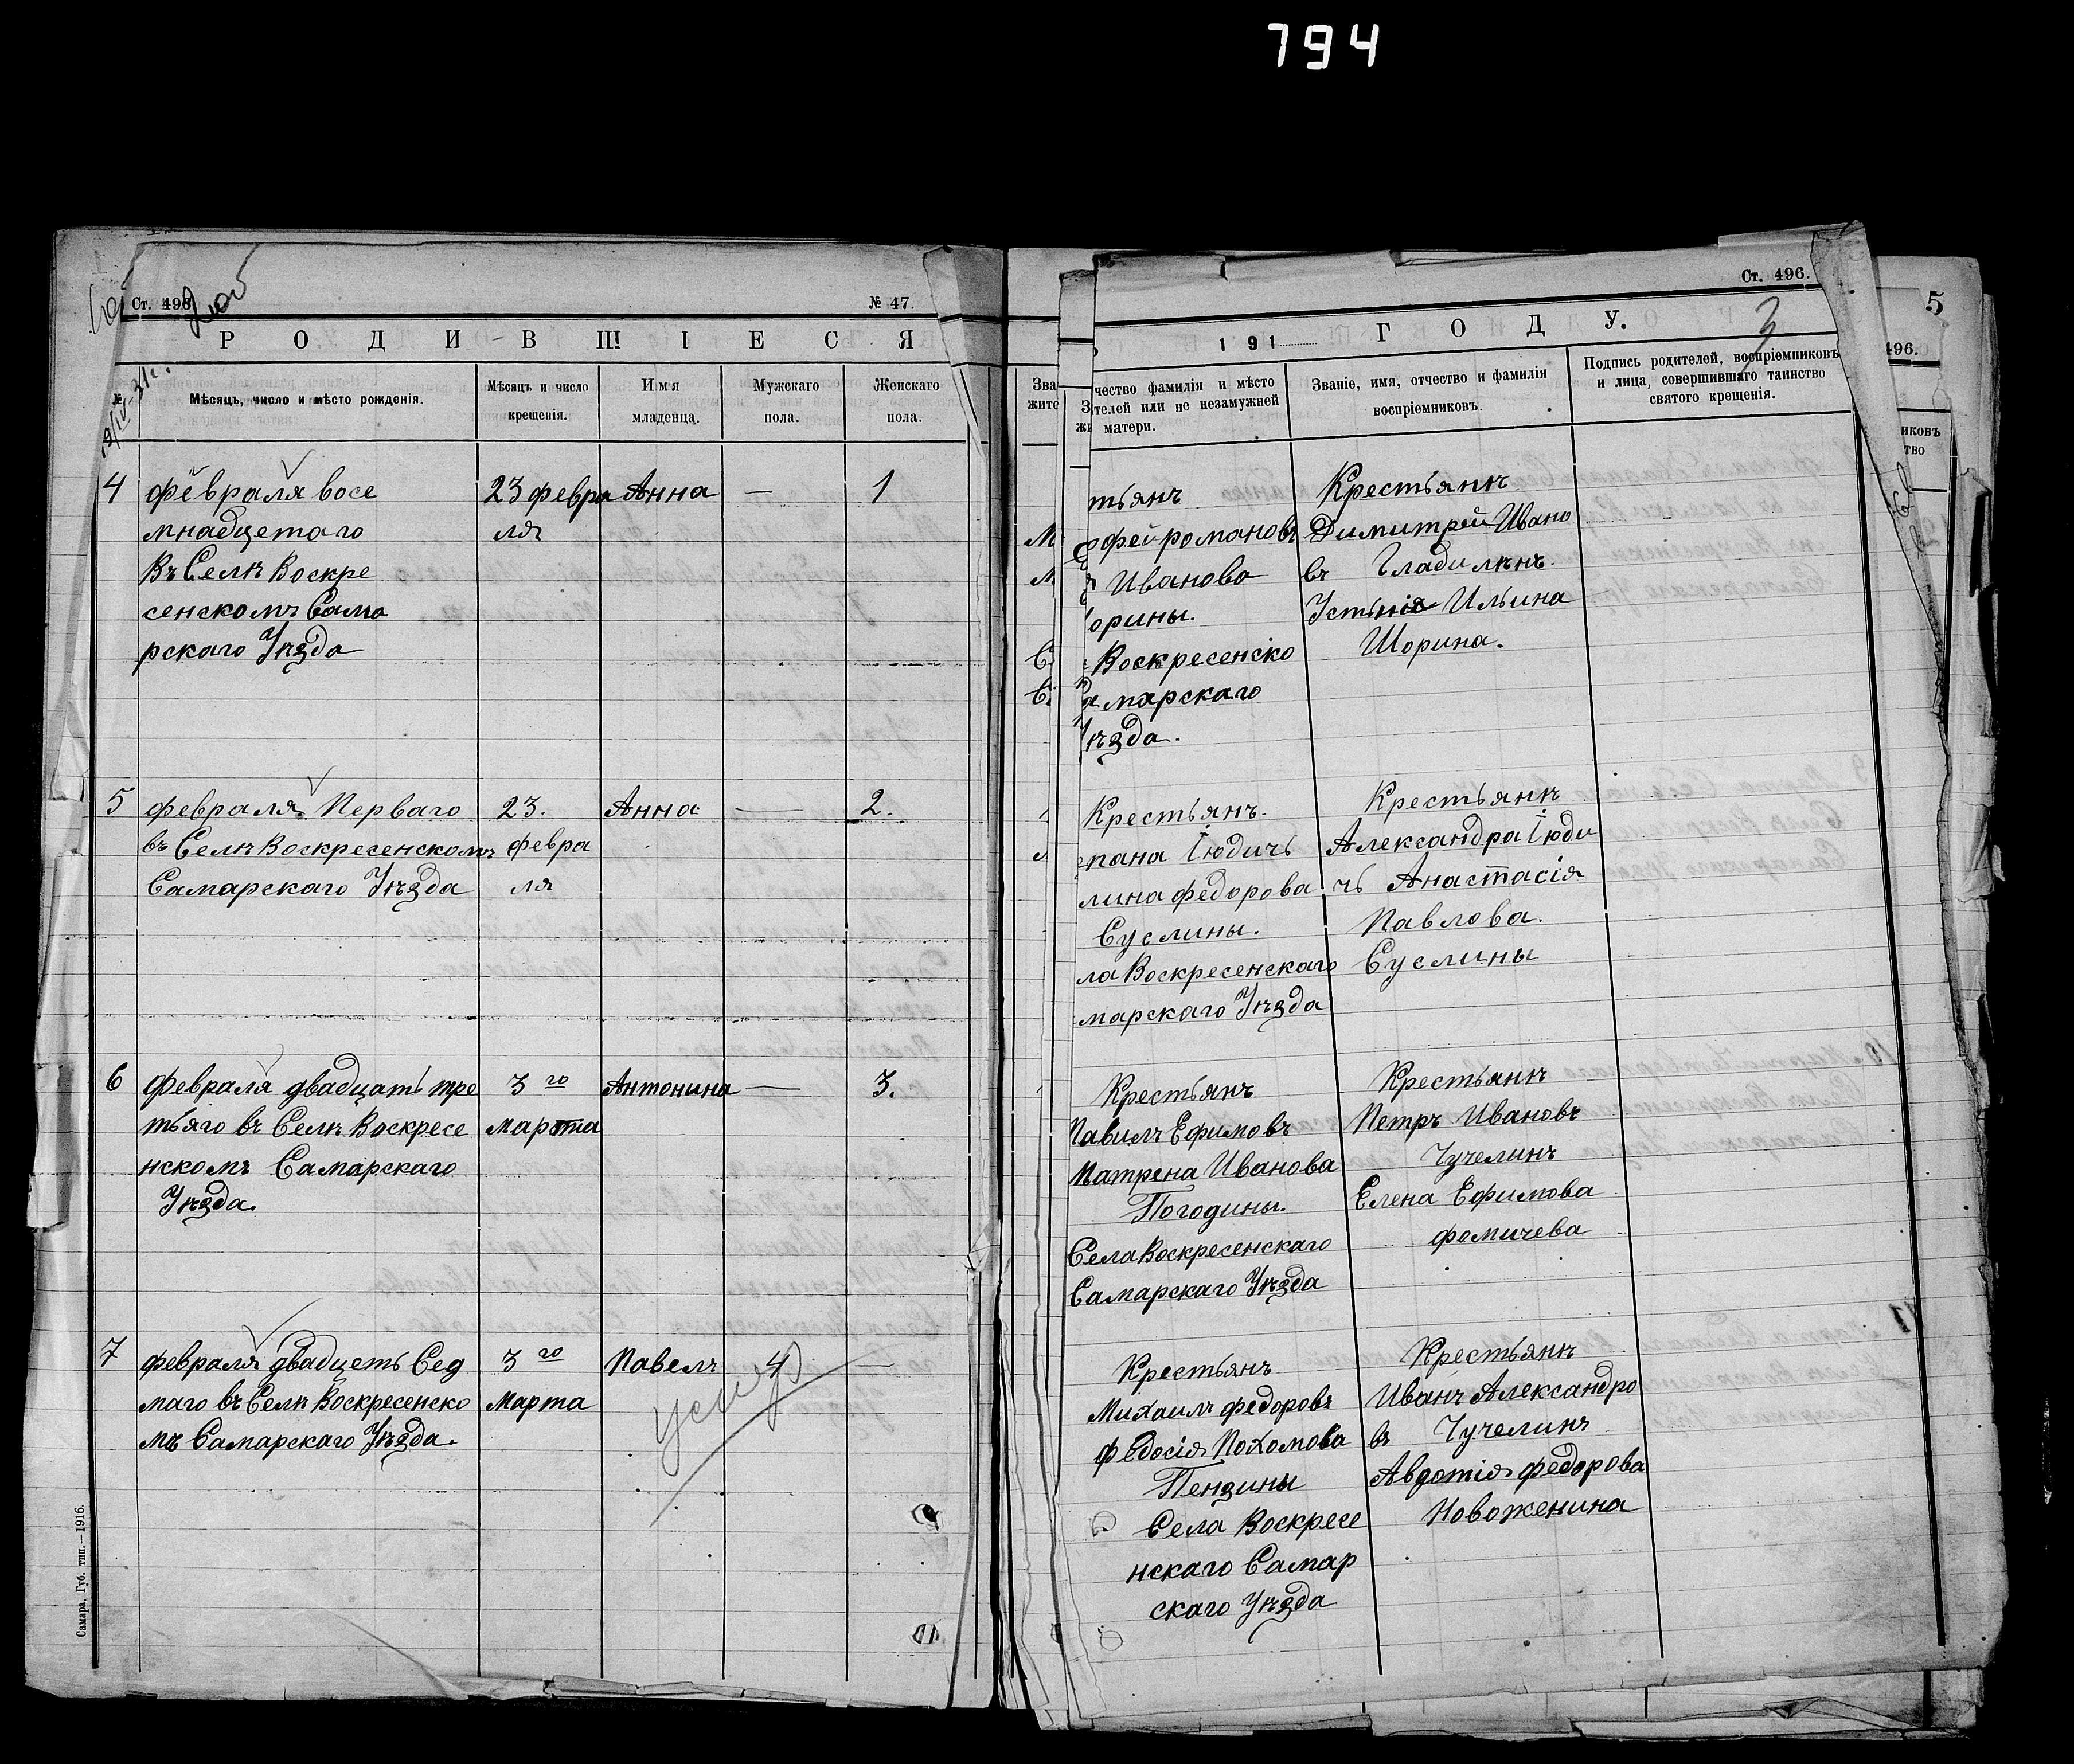 794
Ст. 496
№ 47.
РОДИВШІЕСЯ
№
Мѣсяцъ, число и мѣсто рожденія.
Мѣсяцъ и число
крещенія.
Имя
младенца.
Мужскаго
пола.
Женскаго
пола.
4 февраля восе
мнадцетаго
Въ Селѣ Воскре
сенскомъ Сама
рскаго Уѣзда
23 февра
ля
Анна
—
1
5 февраля Перваго
въ Селѣ Воскресенскомъ
Самарскаго Уѣзда
23.
февра
ля
Анна
—
2.
6 февраля двадцать тре
тьяго въ Селѣ Воскресе
нскомъ Самарскаго
Уѣзда.
3 го
марта
Антонина
—
3.
7 февраля двадцеть Сед
маго въ Селѣ Воскресенско
мъ Самарскаго Уѣзда.
3 го
марта
Павелъ
4
—
Самара, Губ. тип.—1916.
Ст. 496.
5
496.
191 ГОДУ.
3
Зва
жите
чество фамилія и мѣсто
телей или не незамужней
матери.
Званіе, имя, отчество и фамилія
воспріемниковъ.
Подпись родителей, воспріемниковъ
и лица, совершившаго таинство
святого крещенія.
иковъ
тво
тьянъ
офей романовъ
Иванова
орины.
Воскресенско
амарскаго
ѣзда.
Крестьянѣ
Димитрей Ивано
въ Гладилѣнъ.
Устьнія Ильина
Шорина.
Крестьянъ.
пана Іюдичь
лина федорова
Суслины.
ла Воскресенскаго
марскаго Уѣзда
Крестьянѣ
Александра Іюди
чь Анастасія
Павлова.
Суслины
Крестьянъ
Павилъ Ефимовъ
Матрена Иванова
Погодины.
Села Воскресенскаго
Самарскаго Уѣзда
Крестьянѣ
Петръ Ивановъ
Чучелинъ
Елена Ефимова
фомичева
Крестьянъ
Михаилъ федоровъ
федосія Похомова
Пензины
Села Воскресе
нскаго Самар
скаго Уѣзда
Крестьянѣ
Иванъ Александро
въ Чучелинъ
Авдотія федорова
Новоженина